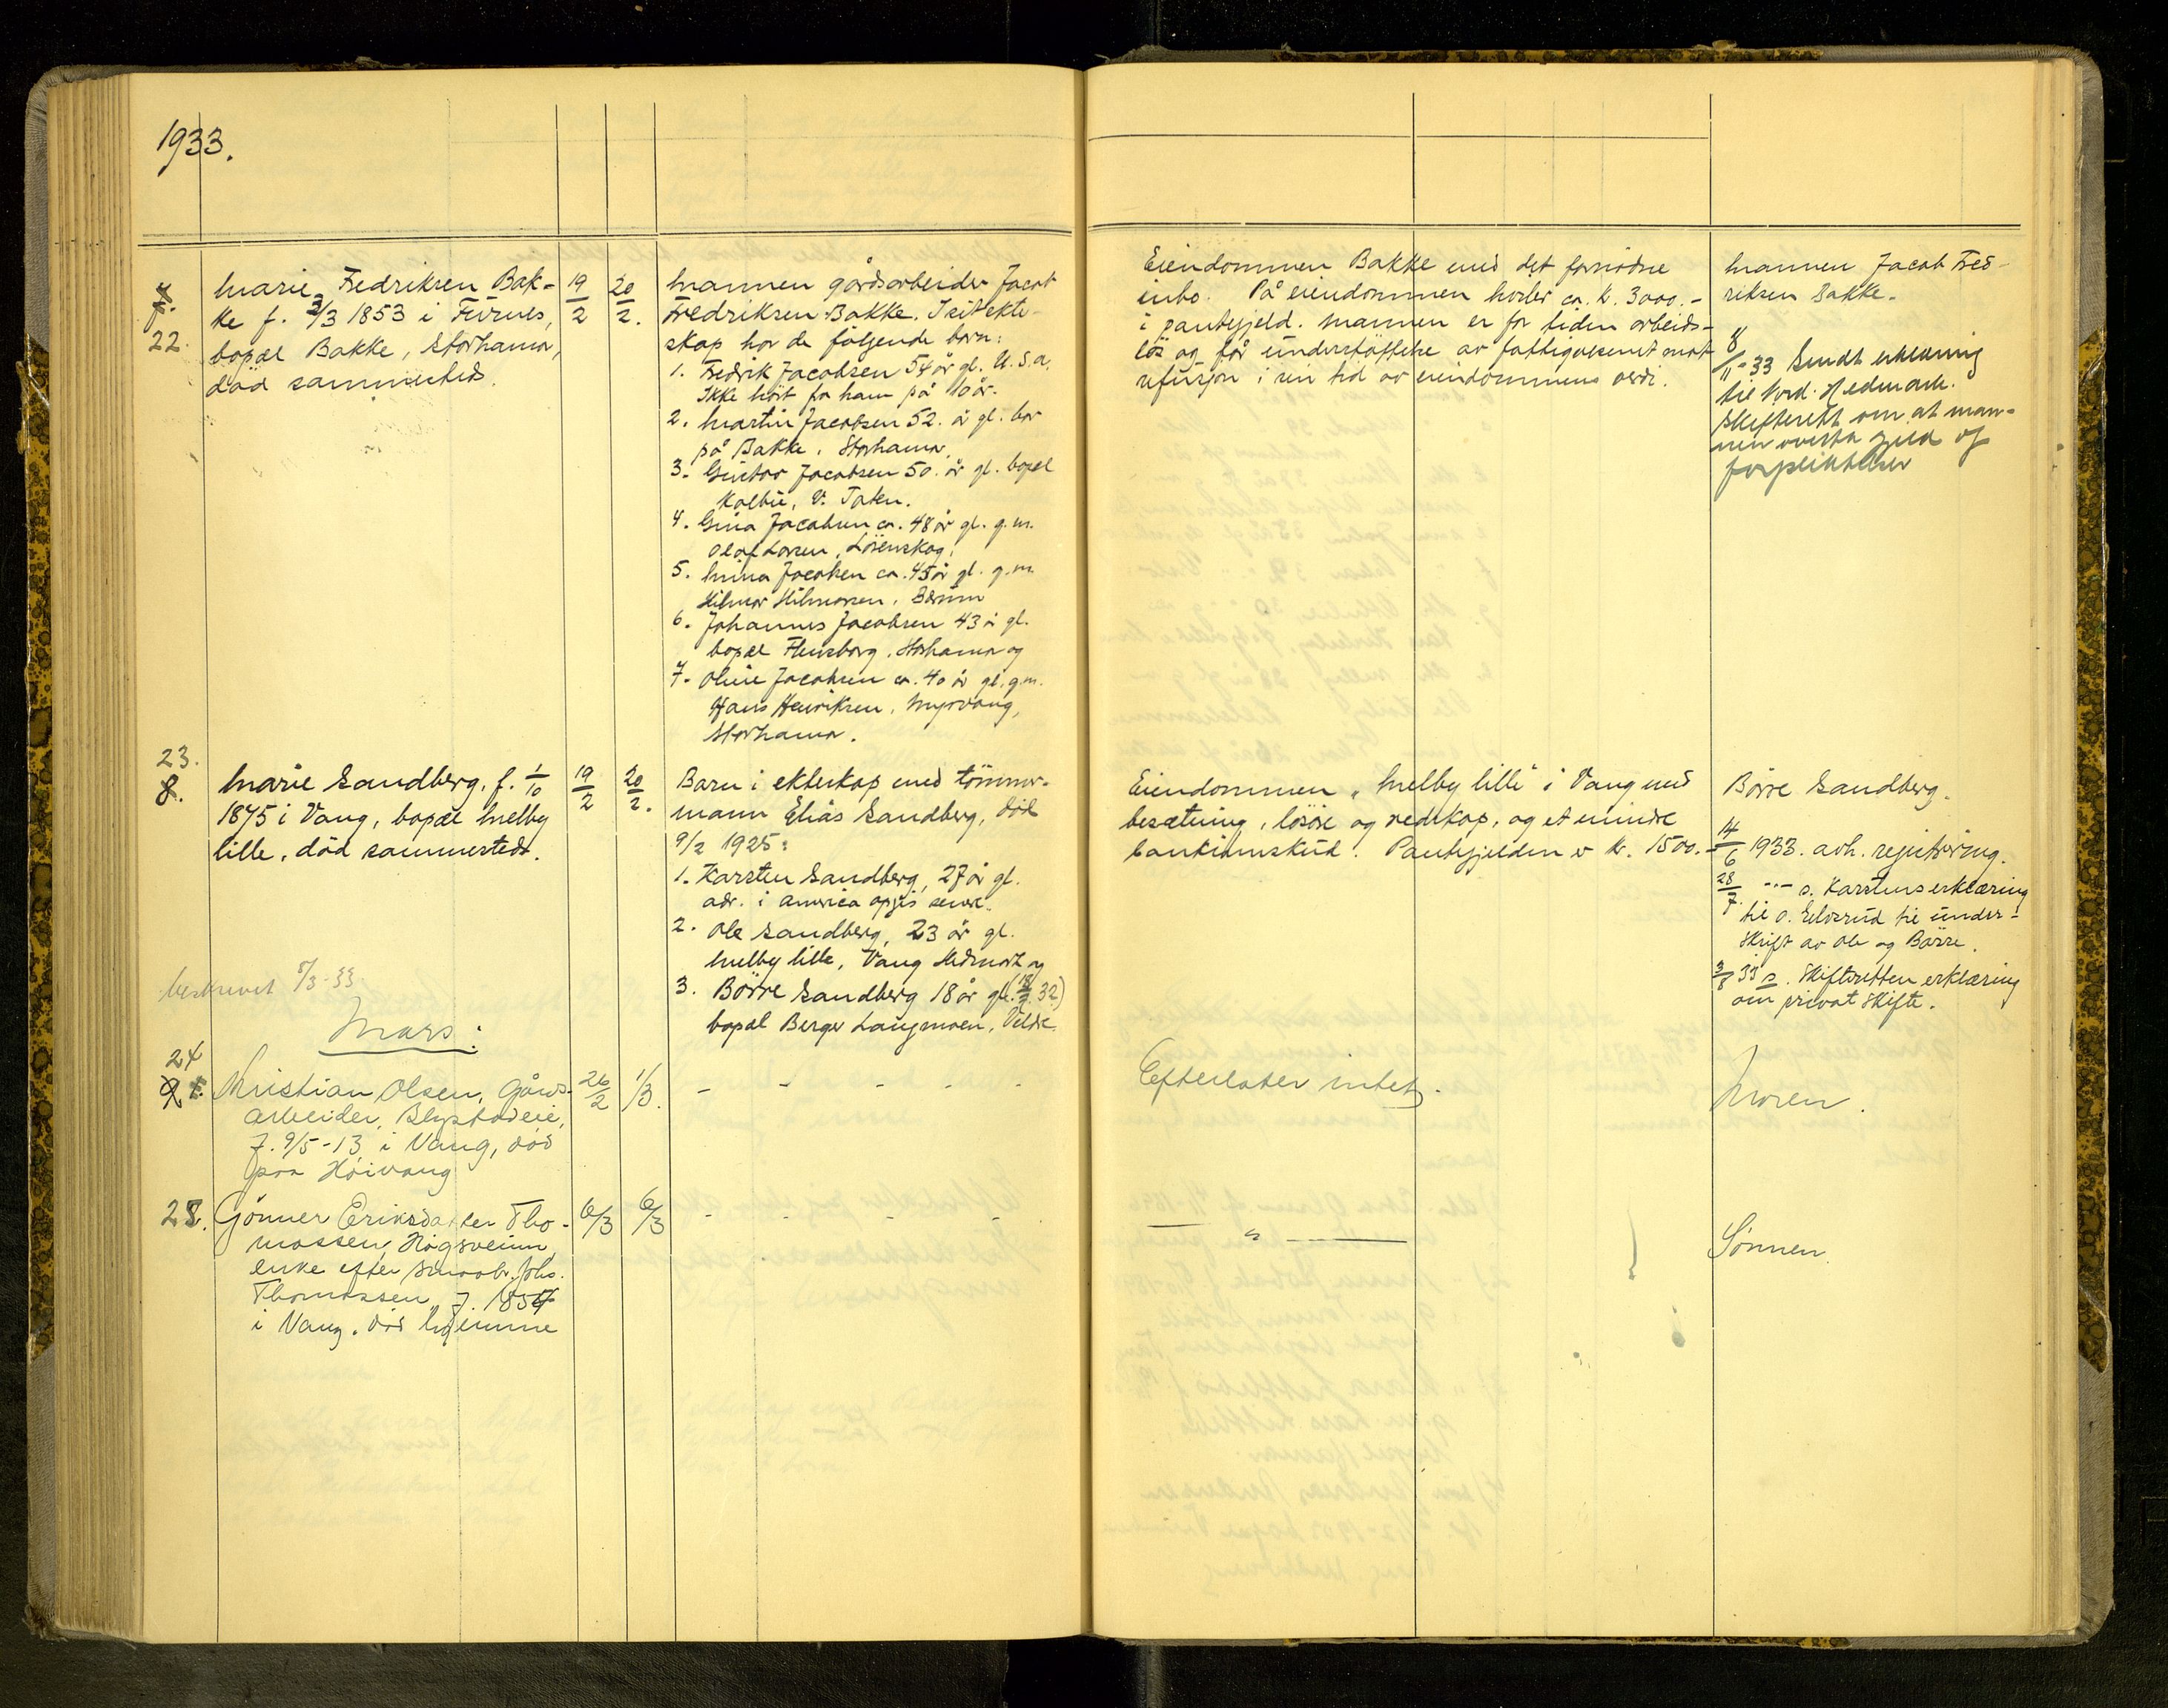 1933.
7.
22.
Marie Fredriksen Bak-
ke f. 3/3 1853 i Furnes,
bopæl Bakke, Storhamar,
død sammesteds.
19/2
20/2.
Mannen gårdsarbeider Jacob
Fredriksen Bakke. I sit ekte-
skap har de følgende barn:
1. Fredrik Jacobsen 54 år gl. U.S.A.
Ikke hørt fra ham på 10 år.
2. Martin Jacobsen 52. år gl. bor
på Bakke, Storhamar.
3. Gustav Jacobsen 50. år gl. bopæl
Kolbu, V. Toten.
4. Gina Jacobsen ca. 48 år gl. g.m.
Olaf Larsen, Lørenskog.
5. Mina Jacobsen ca. 45 år gl. g.m.
Hilmar Hilmarsen, Bærum
6. Johannes Jacobsen 43 år gl.
bopæl Flensborg, Storhamar og
7. Oline Jacobsen ca. 40 år gl. g.m.
Hans Henriksen, Myrvang,
Storhamar.
Eiendommen Bakke med det fornødne
inbo. På eiendommen hviler ca. kr. 3000.-
i pantegjeld. Mannen er for tiden arbeids-
løs og får understøttelse av fattigvesenet mot
refusjon i sin tid av eiendommens verdi.
Mannen Jacob Fred-
riksen Bakke.
8/11-33 Sendt erklæring
til Nord-Hedmark
Skifterett om at man-
nen overtar gjeld og
forpliktelser
23.
8.
Marie Sandberg, f. 1/10
1875 i Vang, bopæl Melby
lille, død sammesteds.
19/2
20/2.
Barn i ekteskap med tømmer-
mann Elias Sandberg, død
9/2 1925:
1. Karsten Sandberg, 27 år gl.
adr. i America opgis senere.
2. Ole Sandberg, 23 år gl.
Melby lille, Vang Hedmark og
3. Børre Sandberg 18 år gl. (18/7 32)
bopæl Berger Langmoen, Veldre.
Eiendommen „Melby lille" i Vang med
besætning, løsøre og redskap, og et mindre
bankinnskud. Pantegjelden er kr. 1500.-
Børre Sandberg.
14/6 1933. avh. registrering.
28/7 -"- s. Karstens erklæring
til o. til under-
skrift av Ole og Børre.
3/8 33 s. Skifteretten erklæring
om privat skifte.
beskrevet 5/3-33.
Mars:
24
9.
Kristian Olsen, Gårds-
arbeider, Blystadeie,
f. 9/5-13 i Vang, død
paa Høivang
26/2
1/3.
- - - - -
Efterlater intet.
Moren.
25.
Gønner Eriksdatter Tho-
massen, Høgsveinn
enke efter smaabr. Johs.
Thomassen, f. 1854
i Vang. død hjemme
6/3
6/3
- - - -
— " —
Sønnen.